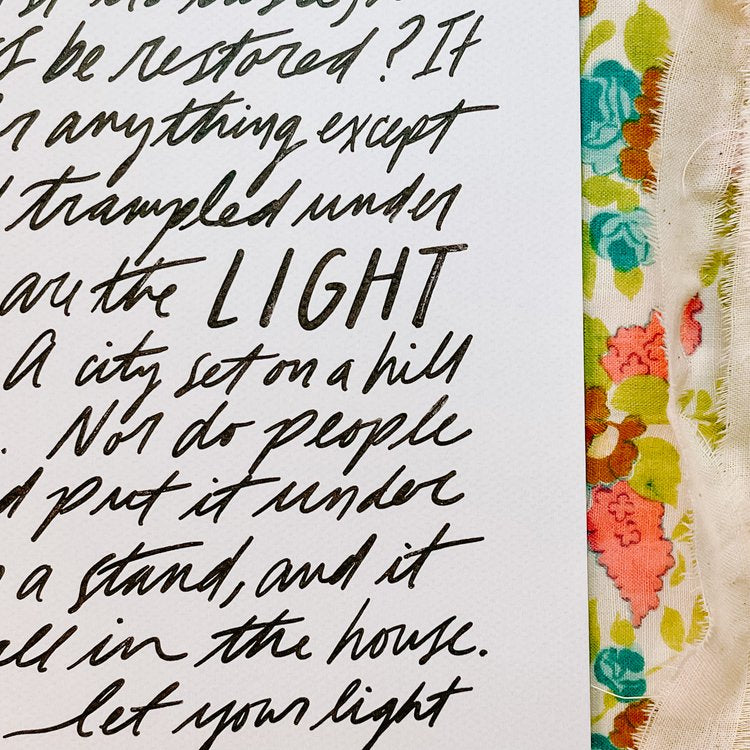 be restored? It
anything except
trampled under
are the LIGHT
A city set on a hill
. Nor do people
put it under
a stand, and it
in the house.
let your light